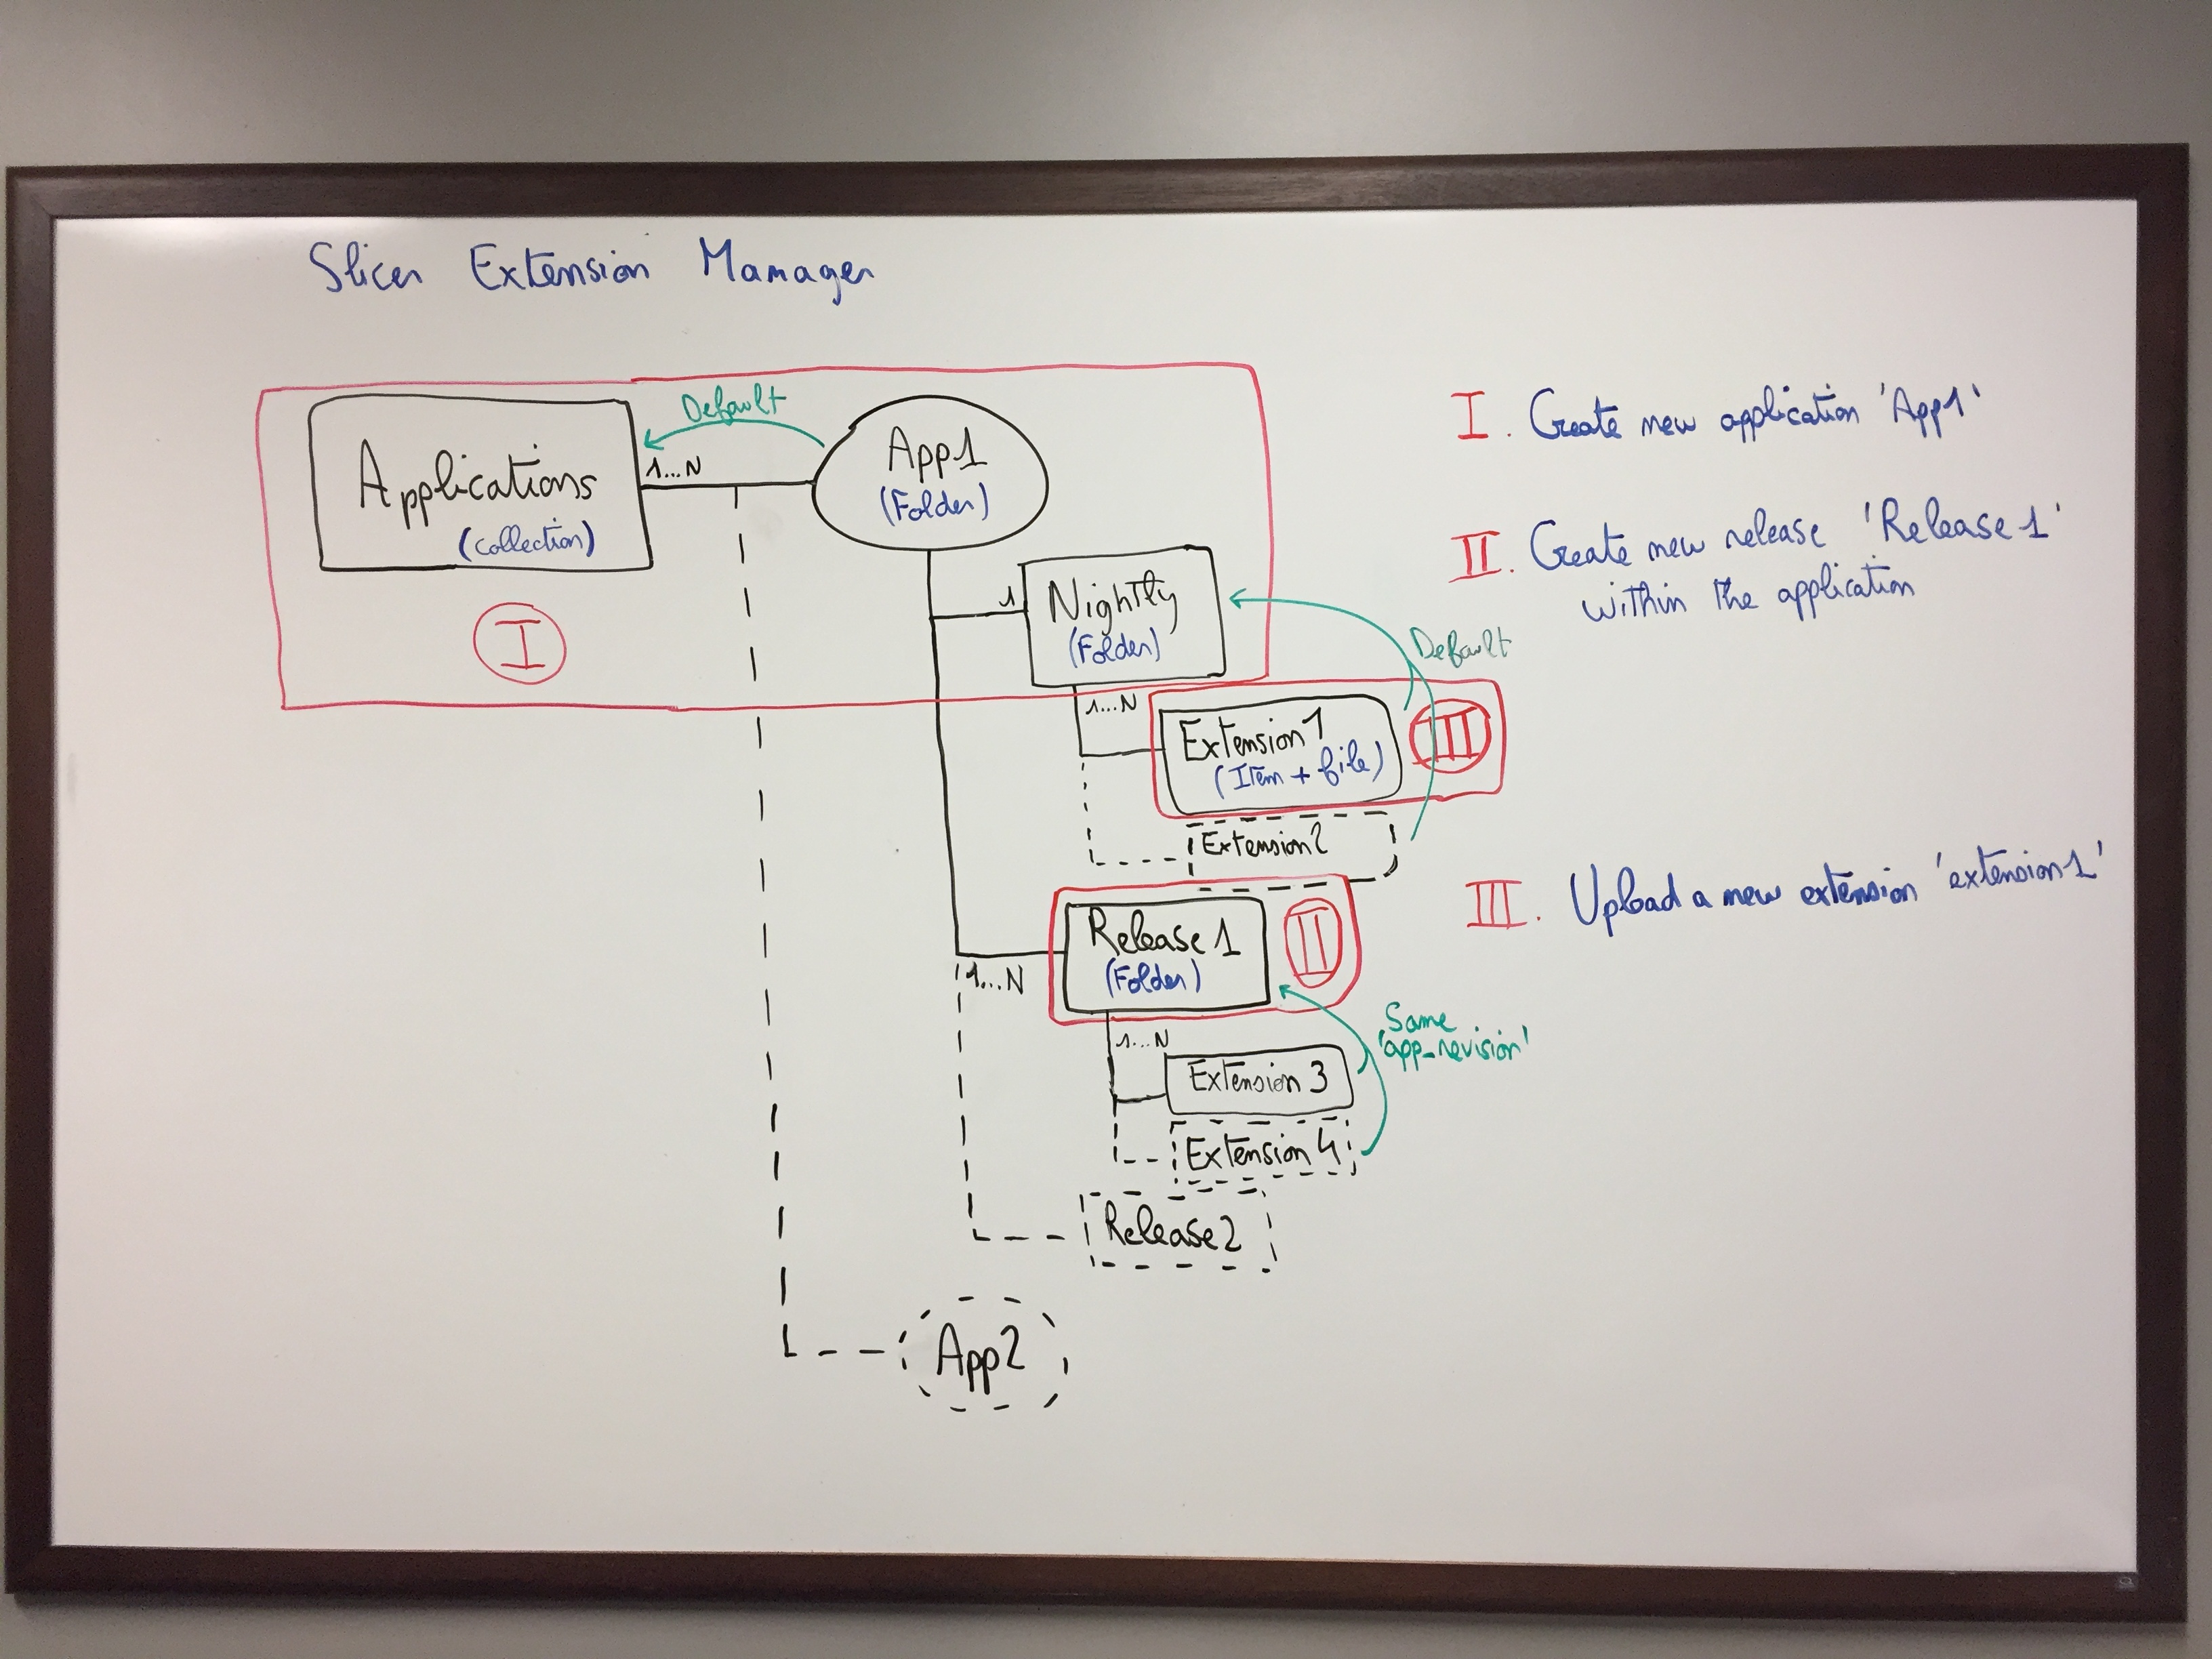 Slicer Extension Manager
Default
Applications
(collection)
1...N
App1
(Folder)
I
1
Nightly
(Folder)
Default
1...N
Extension1
(Item + file)
III
Extension2
1...N
Release 1
(Folder)
II
Same
'app_revision'
1...N
Extension 3
Extension 4
Release2
App2
I. Create new application 'App1'
II. Create new release 'Release 1'
within the application
III. Upload a new extension 'extension1'